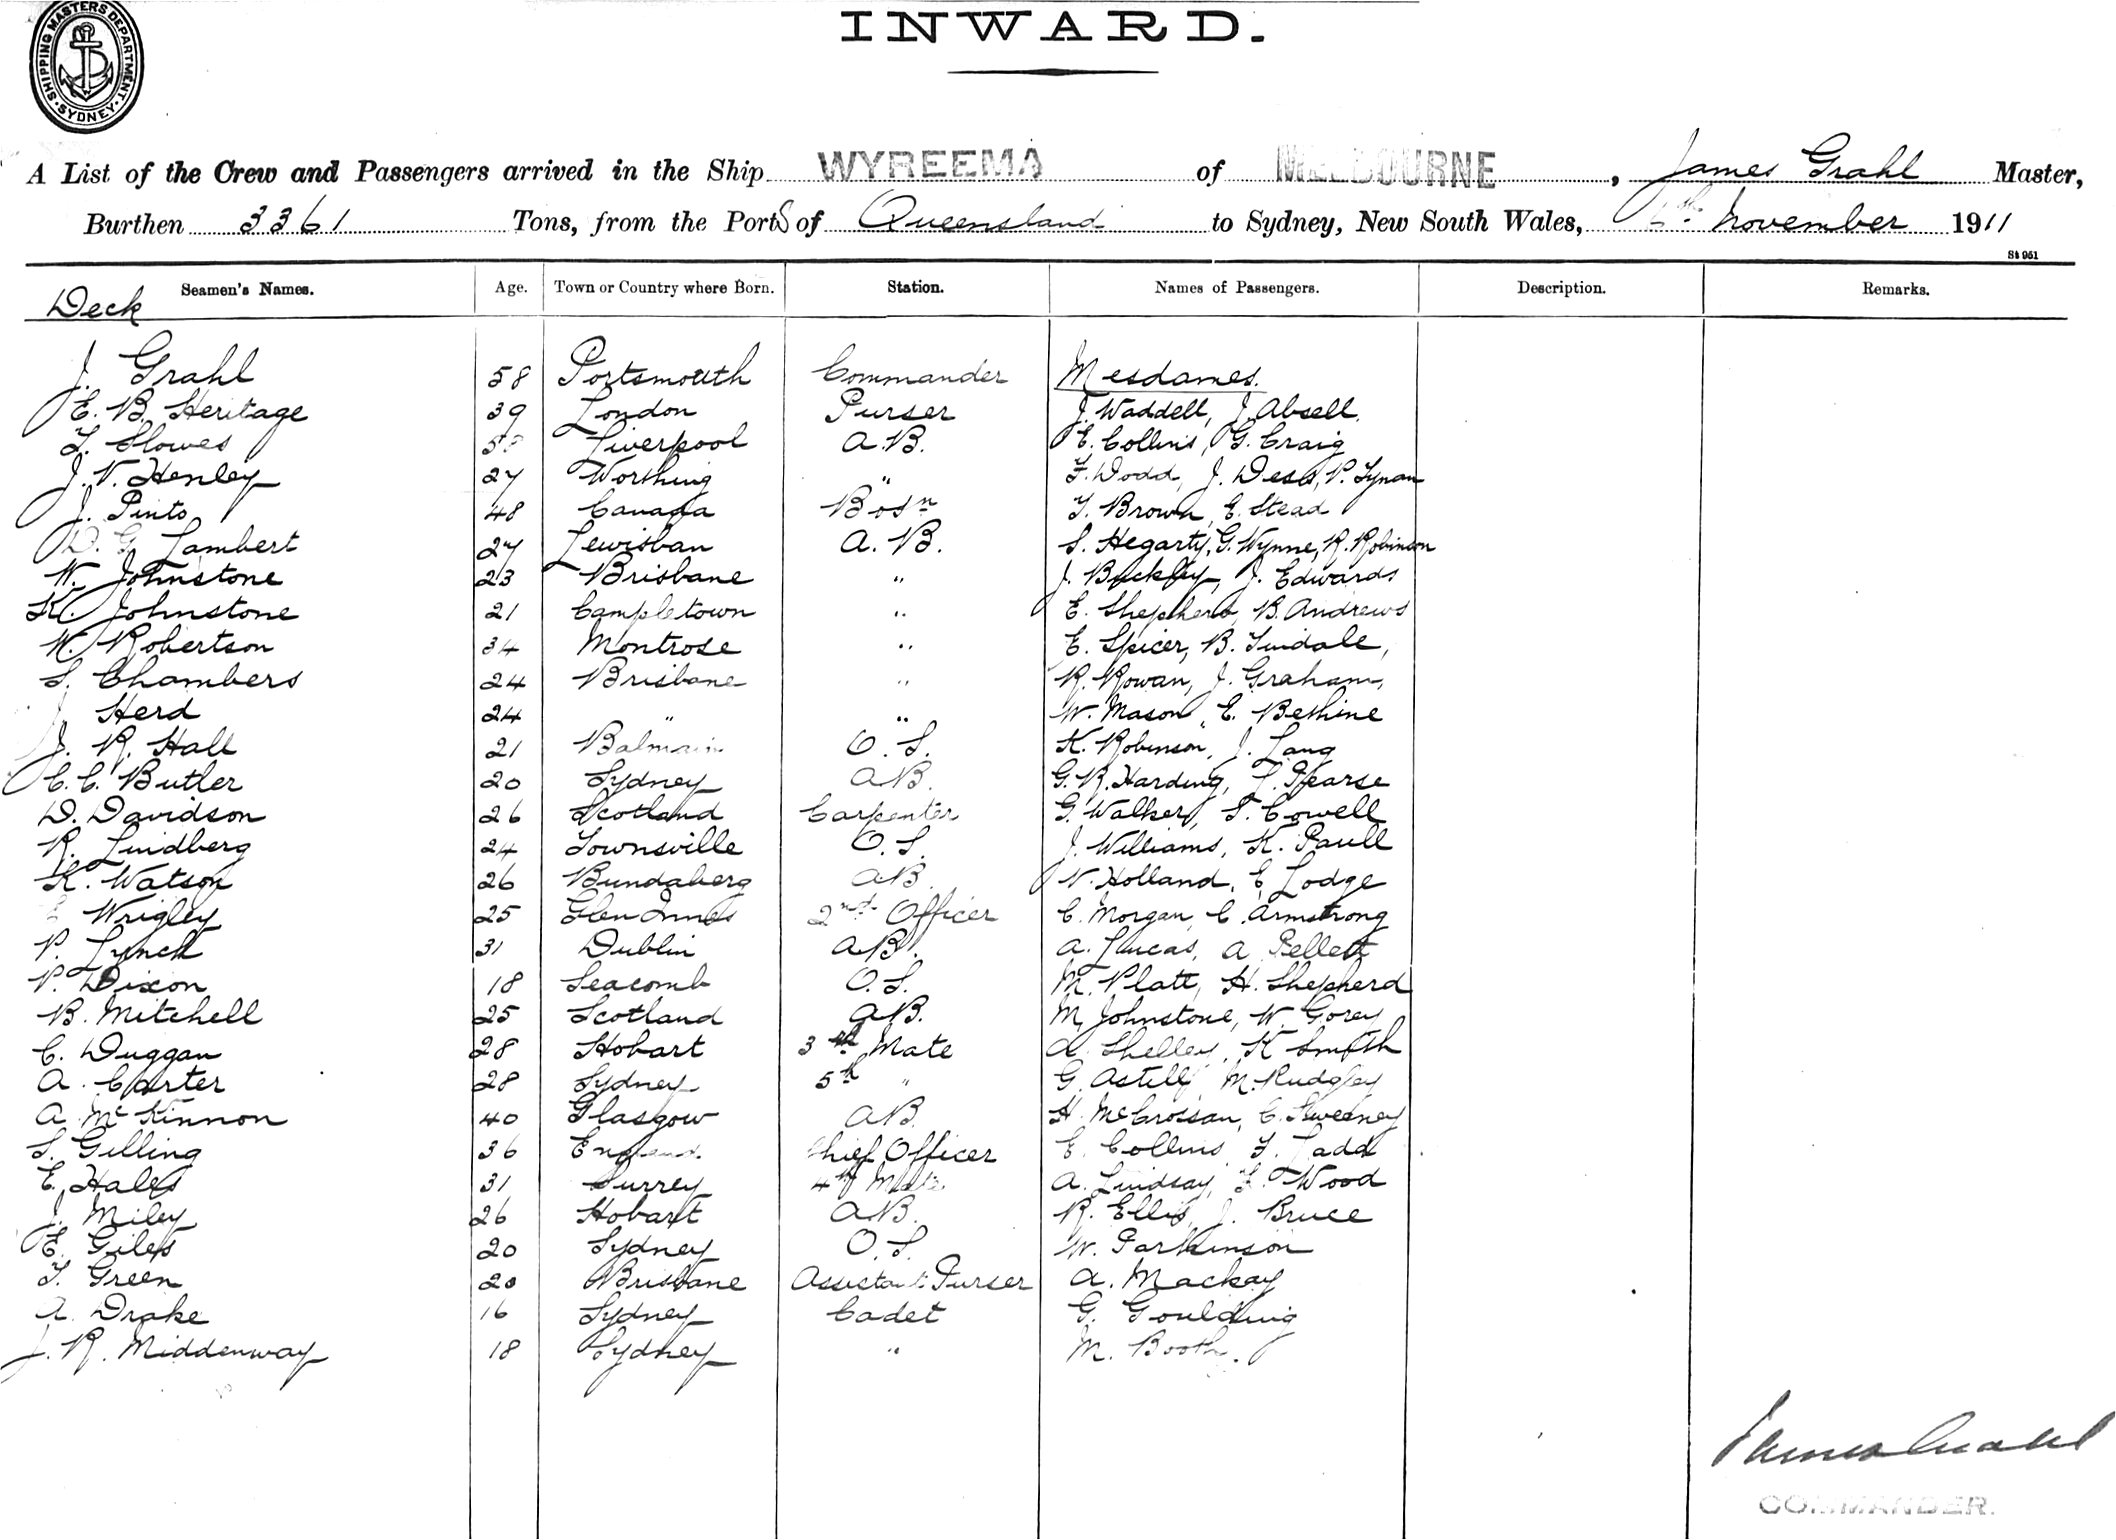 SHIPPING MASTERS DEPARTMENT · SYDNEY ·
INWARD.
A List of the Crew and Passengers arrived in the Ship WYREEMA of MELBOURNE, James Grahl Master,
Burthen 3361 Tons, from the PortS of Queensland to Sydney, New South Wales, 6th November 1911
St 951
Seamen's Names. Age. Town or Country where Born. Station. Names of Passengers. Description. Remarks.
Deck
J. Grahl 58 Portsmouth Commander Mesdames.
E. B. Heritage 39 London Purser J. Waddell, J. Absell,
T. Slowes Liverpool A.B. E. Collins, G. Craig
J. V. Henley 27 Worthing " F. Dodd, J. Dess, P. Tynan
J. Pinto 48 Canada Bosn T. Brown, E. Stead
D. G. Lambert 27 Lewisban A. B. S. Hegarty, G. Wynne, R. Robinson
W. Johnstone 23 Brisbane " J. Buckley, J. Edwards
K. Johnstone 21 Campletown " E. Shepherd, B. Andrews
W. Robertson 34 Montrose " E. Spicer, B. Tindale,
S. Chambers 24 Brisbane " R. Rowan, J. Graham,
J Herd 24 " " W. Mason, E. Bethine
J. R. Hall 21 Balmain O. S. K. Robinson, J. Lang
C. C. Butler 20 Sydney AB. G. R. Harding, Pearse
D. Davidson 26 Scotland Carpenter G. Walker, S. Cowell
R. Lindberg 24 Townsville O. S. J. Williams, K. Paull
K. Watson 26 Bundaberg AB. V. Holland, E. Lodge
Wrigley 25 Glen Innes 2nd Officer C. Morgan, C. Armstrong
P. Lynch 31 Dublin AB. A. Lucas, A Pellett
P. Dixon 18 Seacomb O. S. M. Platt, H. Shepherd
B. Mitchell 25 Scotland AB. M. Johnstone, W. Gorey
C. Duggan 28 Hobart 3rd Mate A. Shelley, K Smith
A. Carter 28 Sydney 5th " G. Astill, M. Rudgley
A. McKinnon 40 Glasgow AB. H. McCrossan, C. Sweeney
S. Gilling 36 England. Chief Officer E Collins, F. Ladd
E. Hales 31 Surrey 4th Mate A. Lindsay, F. Wood
J. Miley 26 Hobart AB. R. Ellis, J. Bruce
E. Giles 20 Sydney O. S. W. Parkinson
T. Green 20 Brisbane Assistant Purser A. Mackay
A. Drake 16 Sydney Cadet G. Goulding
J. R. Middenway 18 Sydney " M. Booth.
James Grahl
COMMANDER.